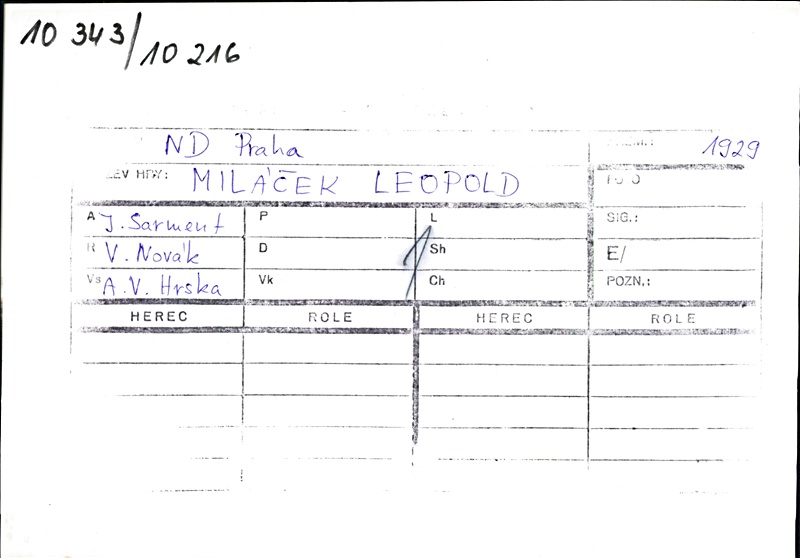 10 343/10 216
ND Praha 1929
EV HRY: MILÁČEK LEOPOLD
A J. Sarment P L SIG.:
R V. Novák D Sh E/
Vs A.V. Hrska Vk Ch POZN.:
HEREC ROLE HEREC ROLE